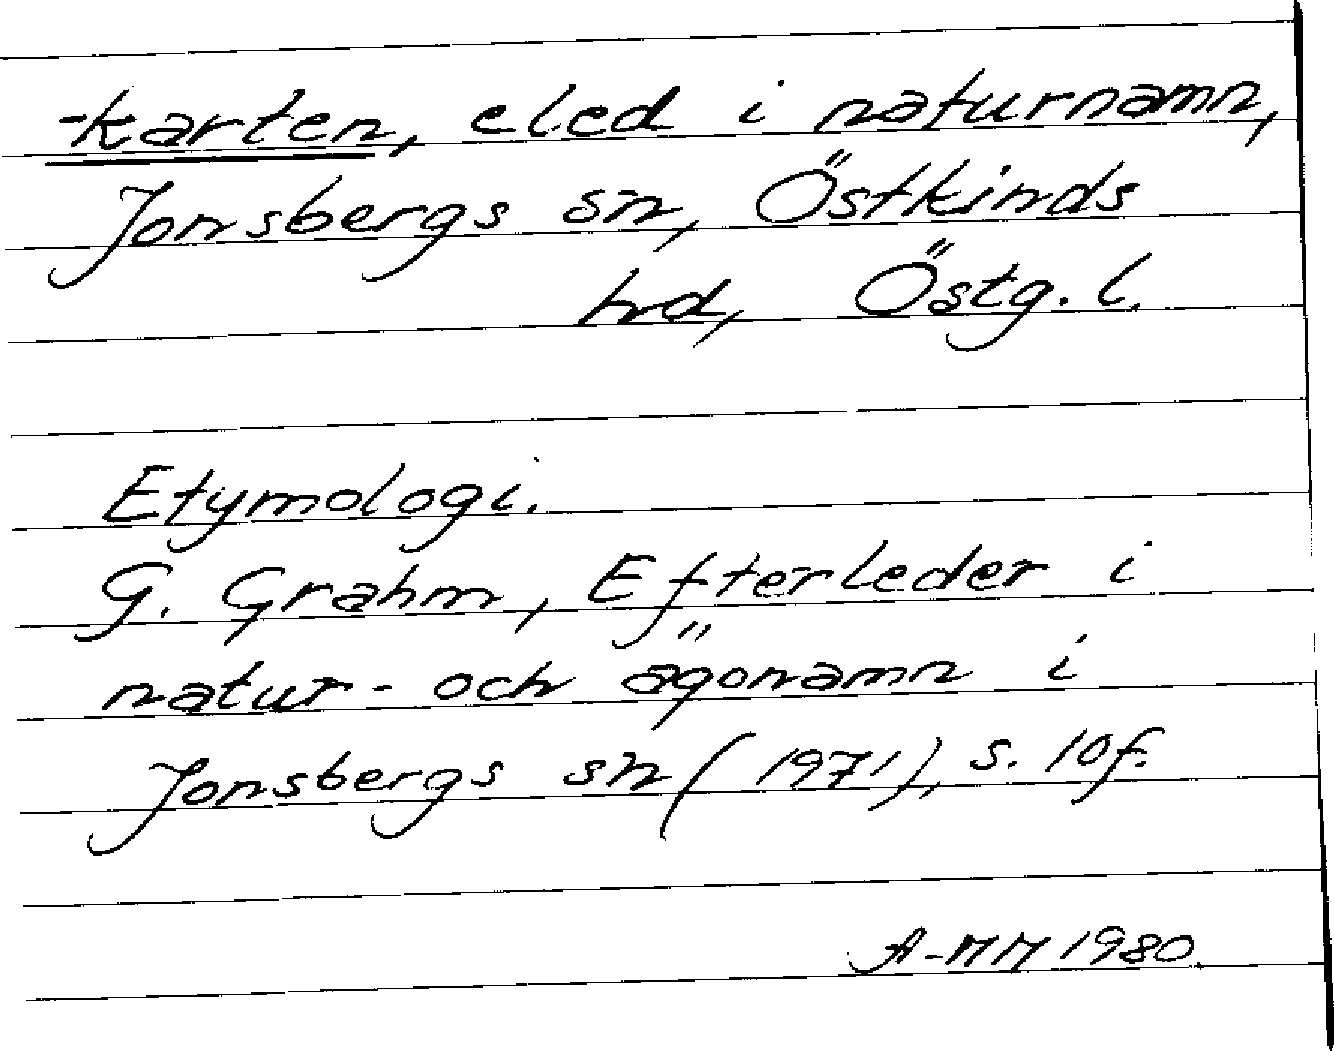 -karten, eled i naturnamn,
Jonsbergs sn, Östkinds
hd, Östg. l.
Etymologi.
G. Grahm, Efterleder i
natur- och ägonamn i
Jonsbergs sn (1971), s. 10f.
A-MM 1980.